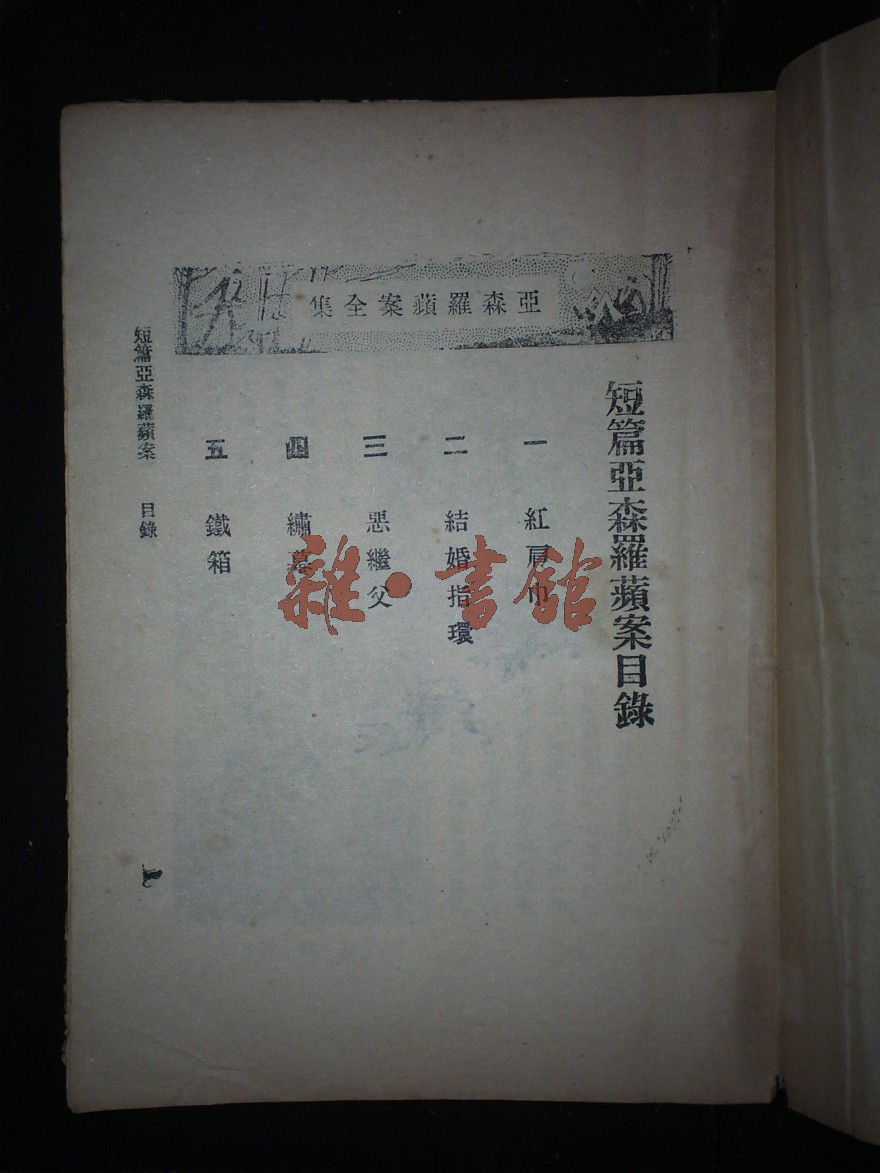 亞森羅蘋案全集
短篇亞森羅蘋案目錄
一 紅肩巾
二 結婚指環
三 惡繼父
四 繡幕
五 鐵箱
短篇亞森羅蘋案 目錄
雜·書館